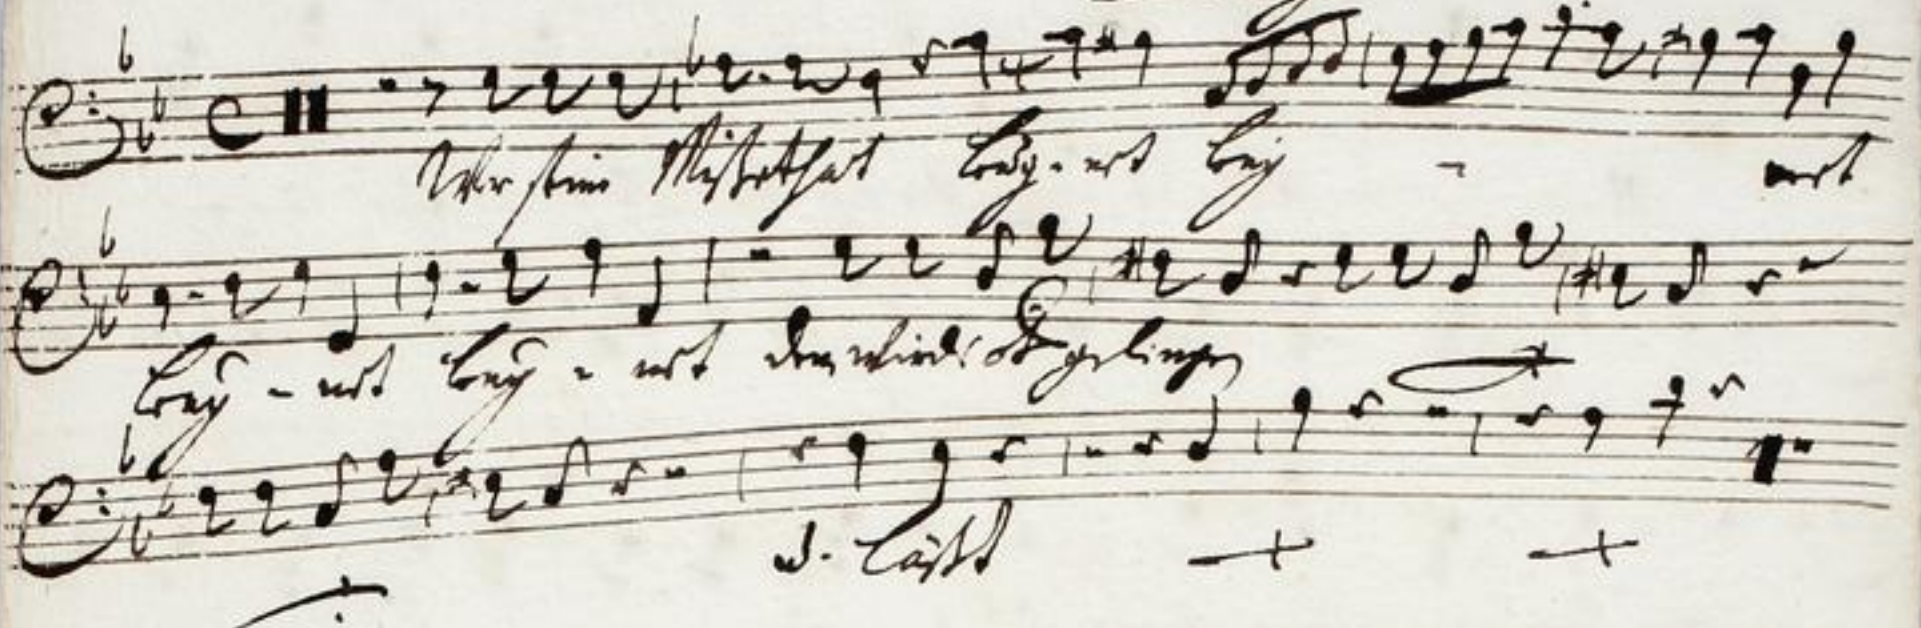 Wer sein Mißethat leug - net leug - net
leug - net leug - net dem wirds gelingen
u. läßt